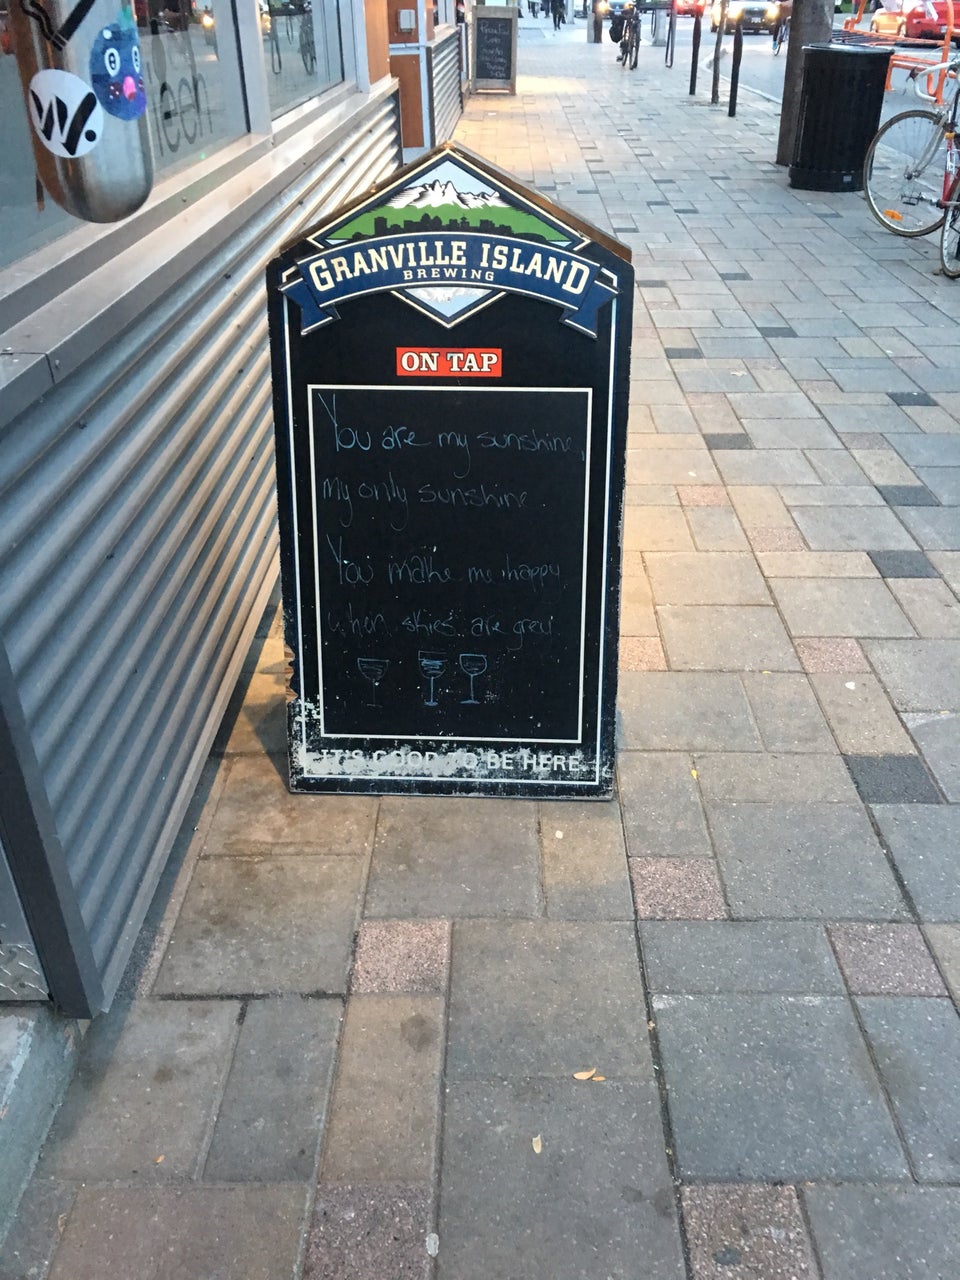 W.
een
GRANVILLE ISLAND
BREWING
ON TAP
You are my sunshine,
my only sunshine.
You make me happy
when skies are grey
IT'S GOOD TO BE HERE.